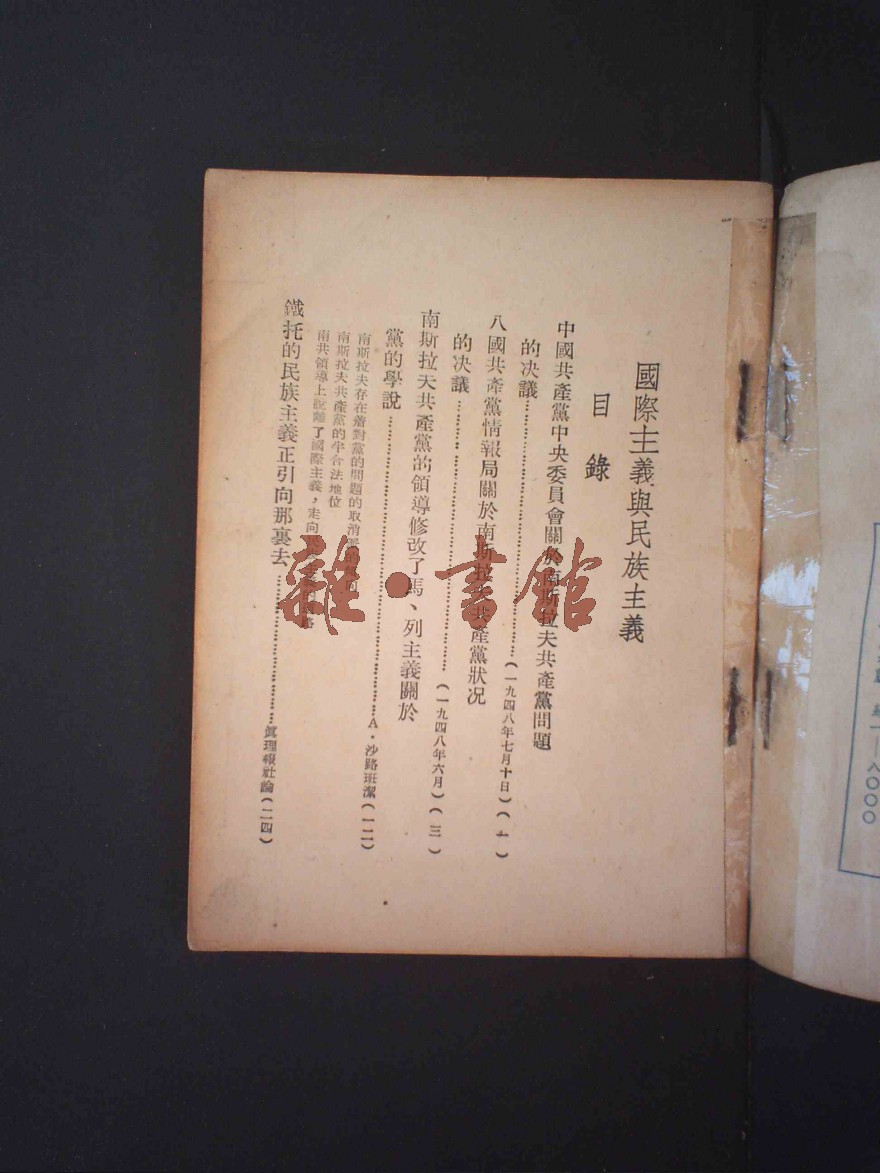 國際主義與民族主義
目錄
中國共產黨中央委員會關於南斯拉夫共產黨問題
的決議……(一九四八年七月十日)(一)
八國共產黨情報局關於南斯拉夫共產黨狀况
的決議……(一九四八年六月)(三)
南斯拉夫共產黨的領導修改了馬、列主義關於
黨的學說……A·沙路班潔(一二)
南斯拉夫存在着對黨的問題的取消
南斯拉夫共產黨的半合法地位
南共領導上脫離了國際主義,走向
鐵托的民族主義正引向那裏去……眞理報社論(二四)
雜·書館
一—八〇〇〇